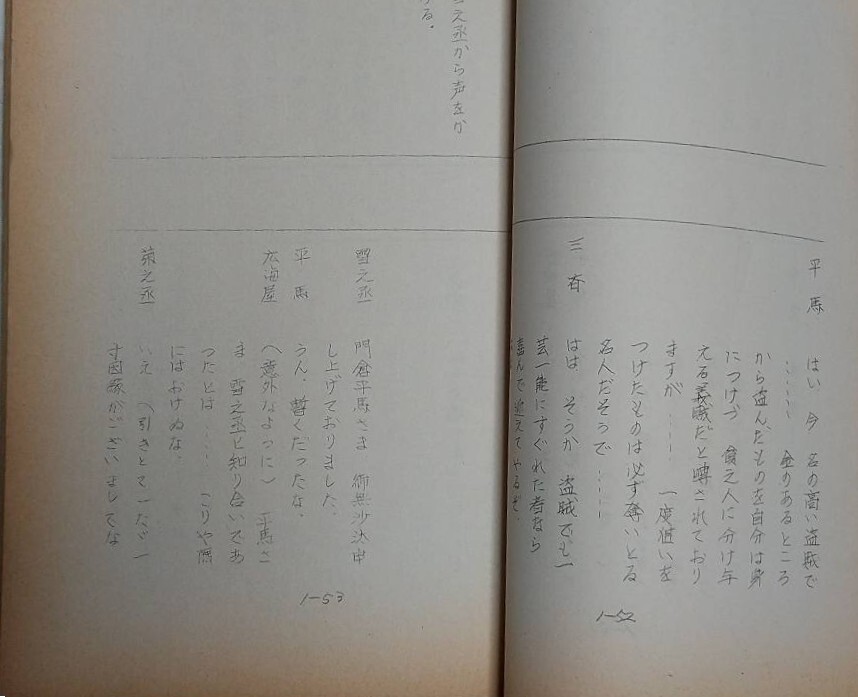 平馬 はい 今 名の高い盗賊で
…… 金のあるところ
から盗んだものを自分は身
につけづ 貧乏人に分け与
える義賊だと噂されており
ますが…… 一度狙いを
つけたものは必ず奪いとる
名人だそうで……
三斉 はは そうか 盗賊でも一
芸一能にすぐれた者なら
喜んで迎えてやるぞ
1-52
之丞から声をか
る。
雪之丞 門倉平馬さま 御無沙汰申
し上げておりました。
平馬 うん、暫くだったな。
広海屋 (意外なように) 平馬さ
ま 雪之丞と知り合いであ
ったとは…… こりや隅
にはおけぬな。
菊之丞 いえ (引きとって)だゞ一
寸因縁がございましてな
1-53